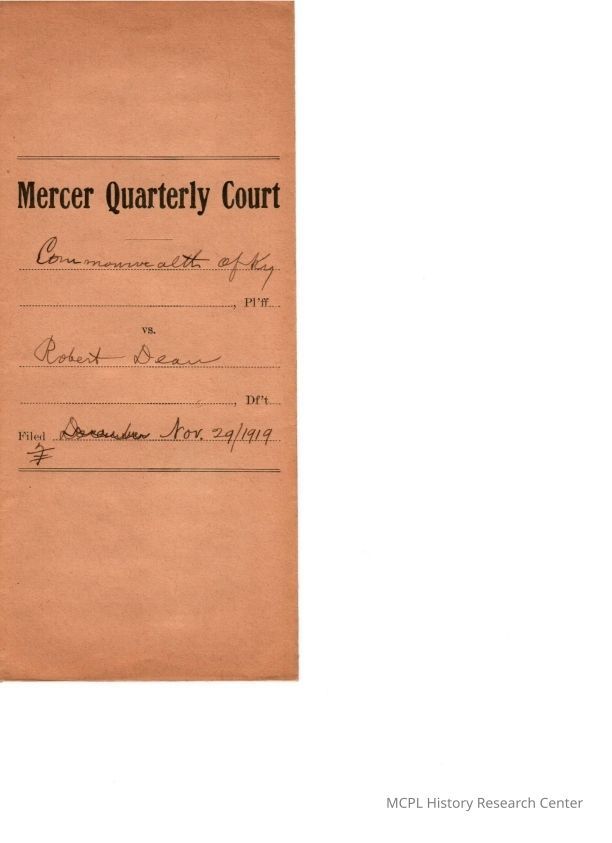 Mercer Quarterly Court
Commonwealth of Ky
, Pl'ff.
vs.
Robert Dean
, Df't.
Filed December Nov. 29/1919
MCPL History Research Center